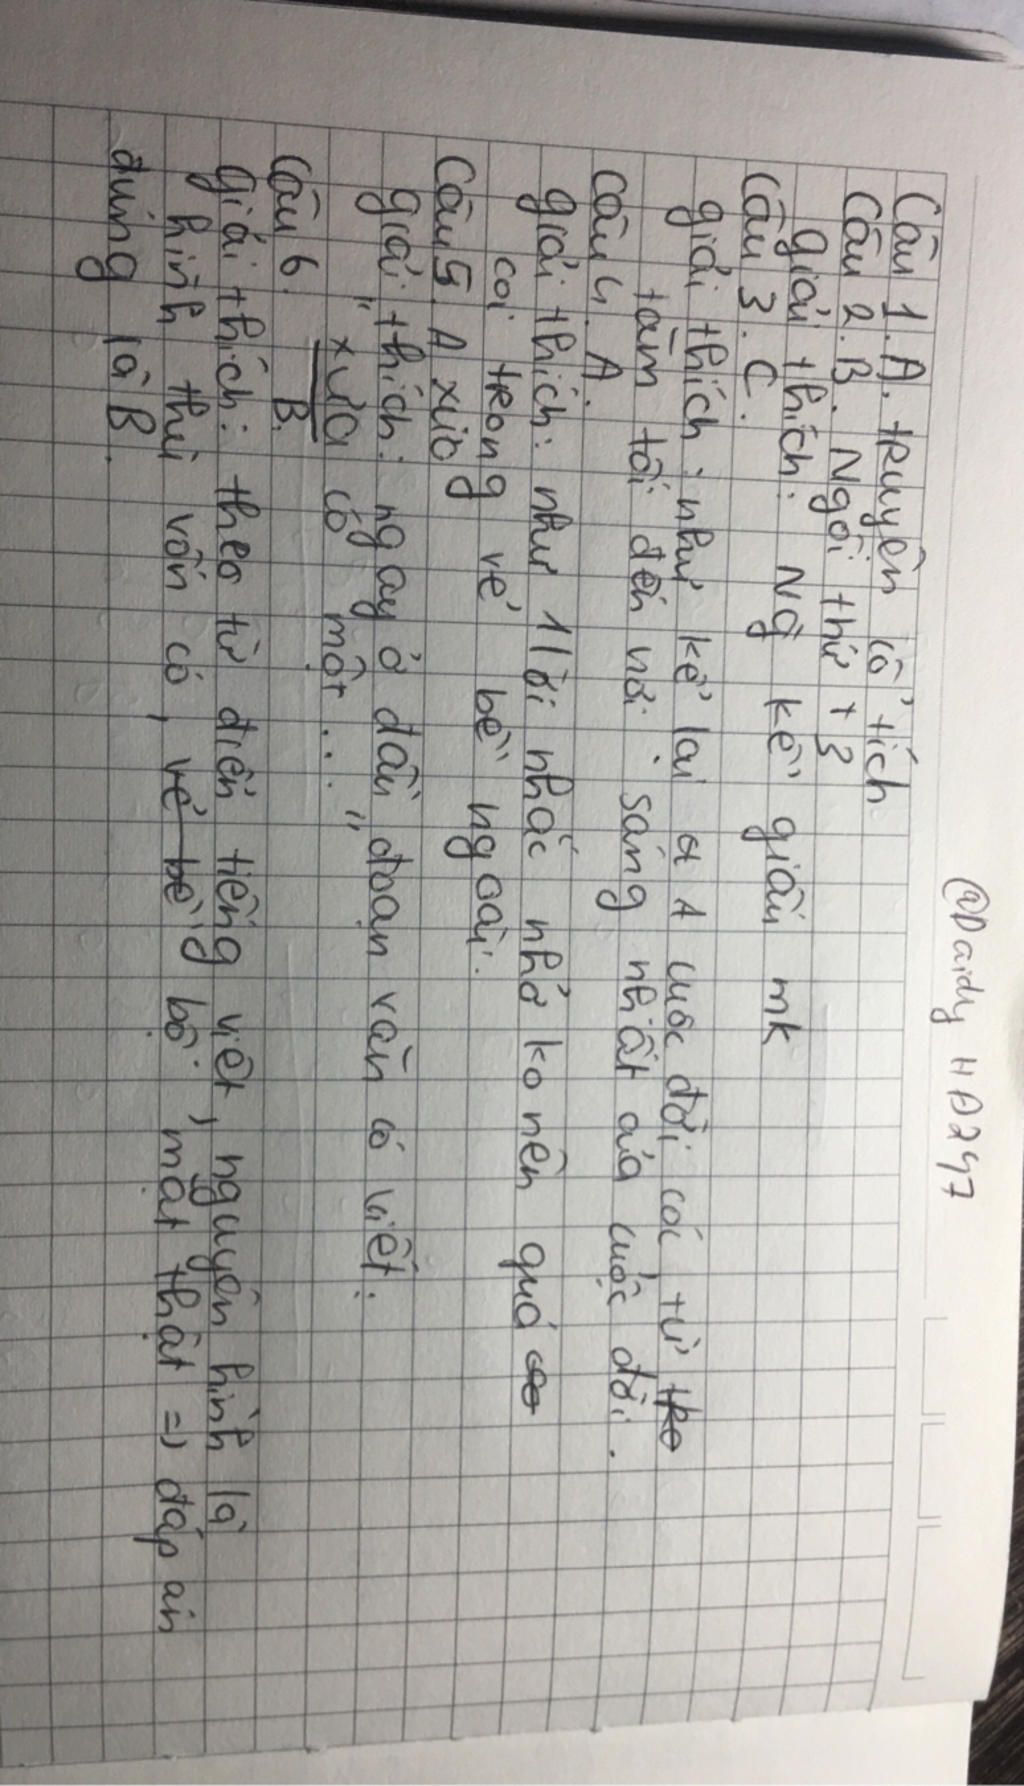 @Daidy HĐ247
Câu 1. A. truyện cổ tích
Câu 2. B. Ngôi thứ t3
giải thích: Ng kể giấu mk
Câu 3. C.
giải thích: như kể lại a A cuộc đời cói từ
tăm tối đến nơi sáng nhất của cuộc đời.
Câu 4. A.
giải thích: như 1 lời nhắc nhở ko nên quá
coi trọng vẻ bề ngoài.
Câu 5. A xưa
giải thích: ngay ở đầu đoạn văn có viết:
" xưa có một ... "
Câu 6. B.
giải thích: theo từ điển tiếng việt, nguyên hình là
hình thù vốn có, bộ mặt thật => đáp án
đúng là B.